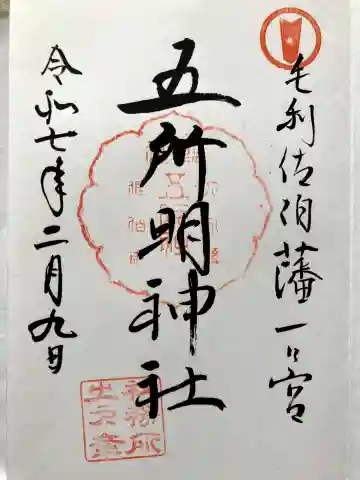 毛利佐伯藩一ノ宮
五所明神社
令和七年二月九日